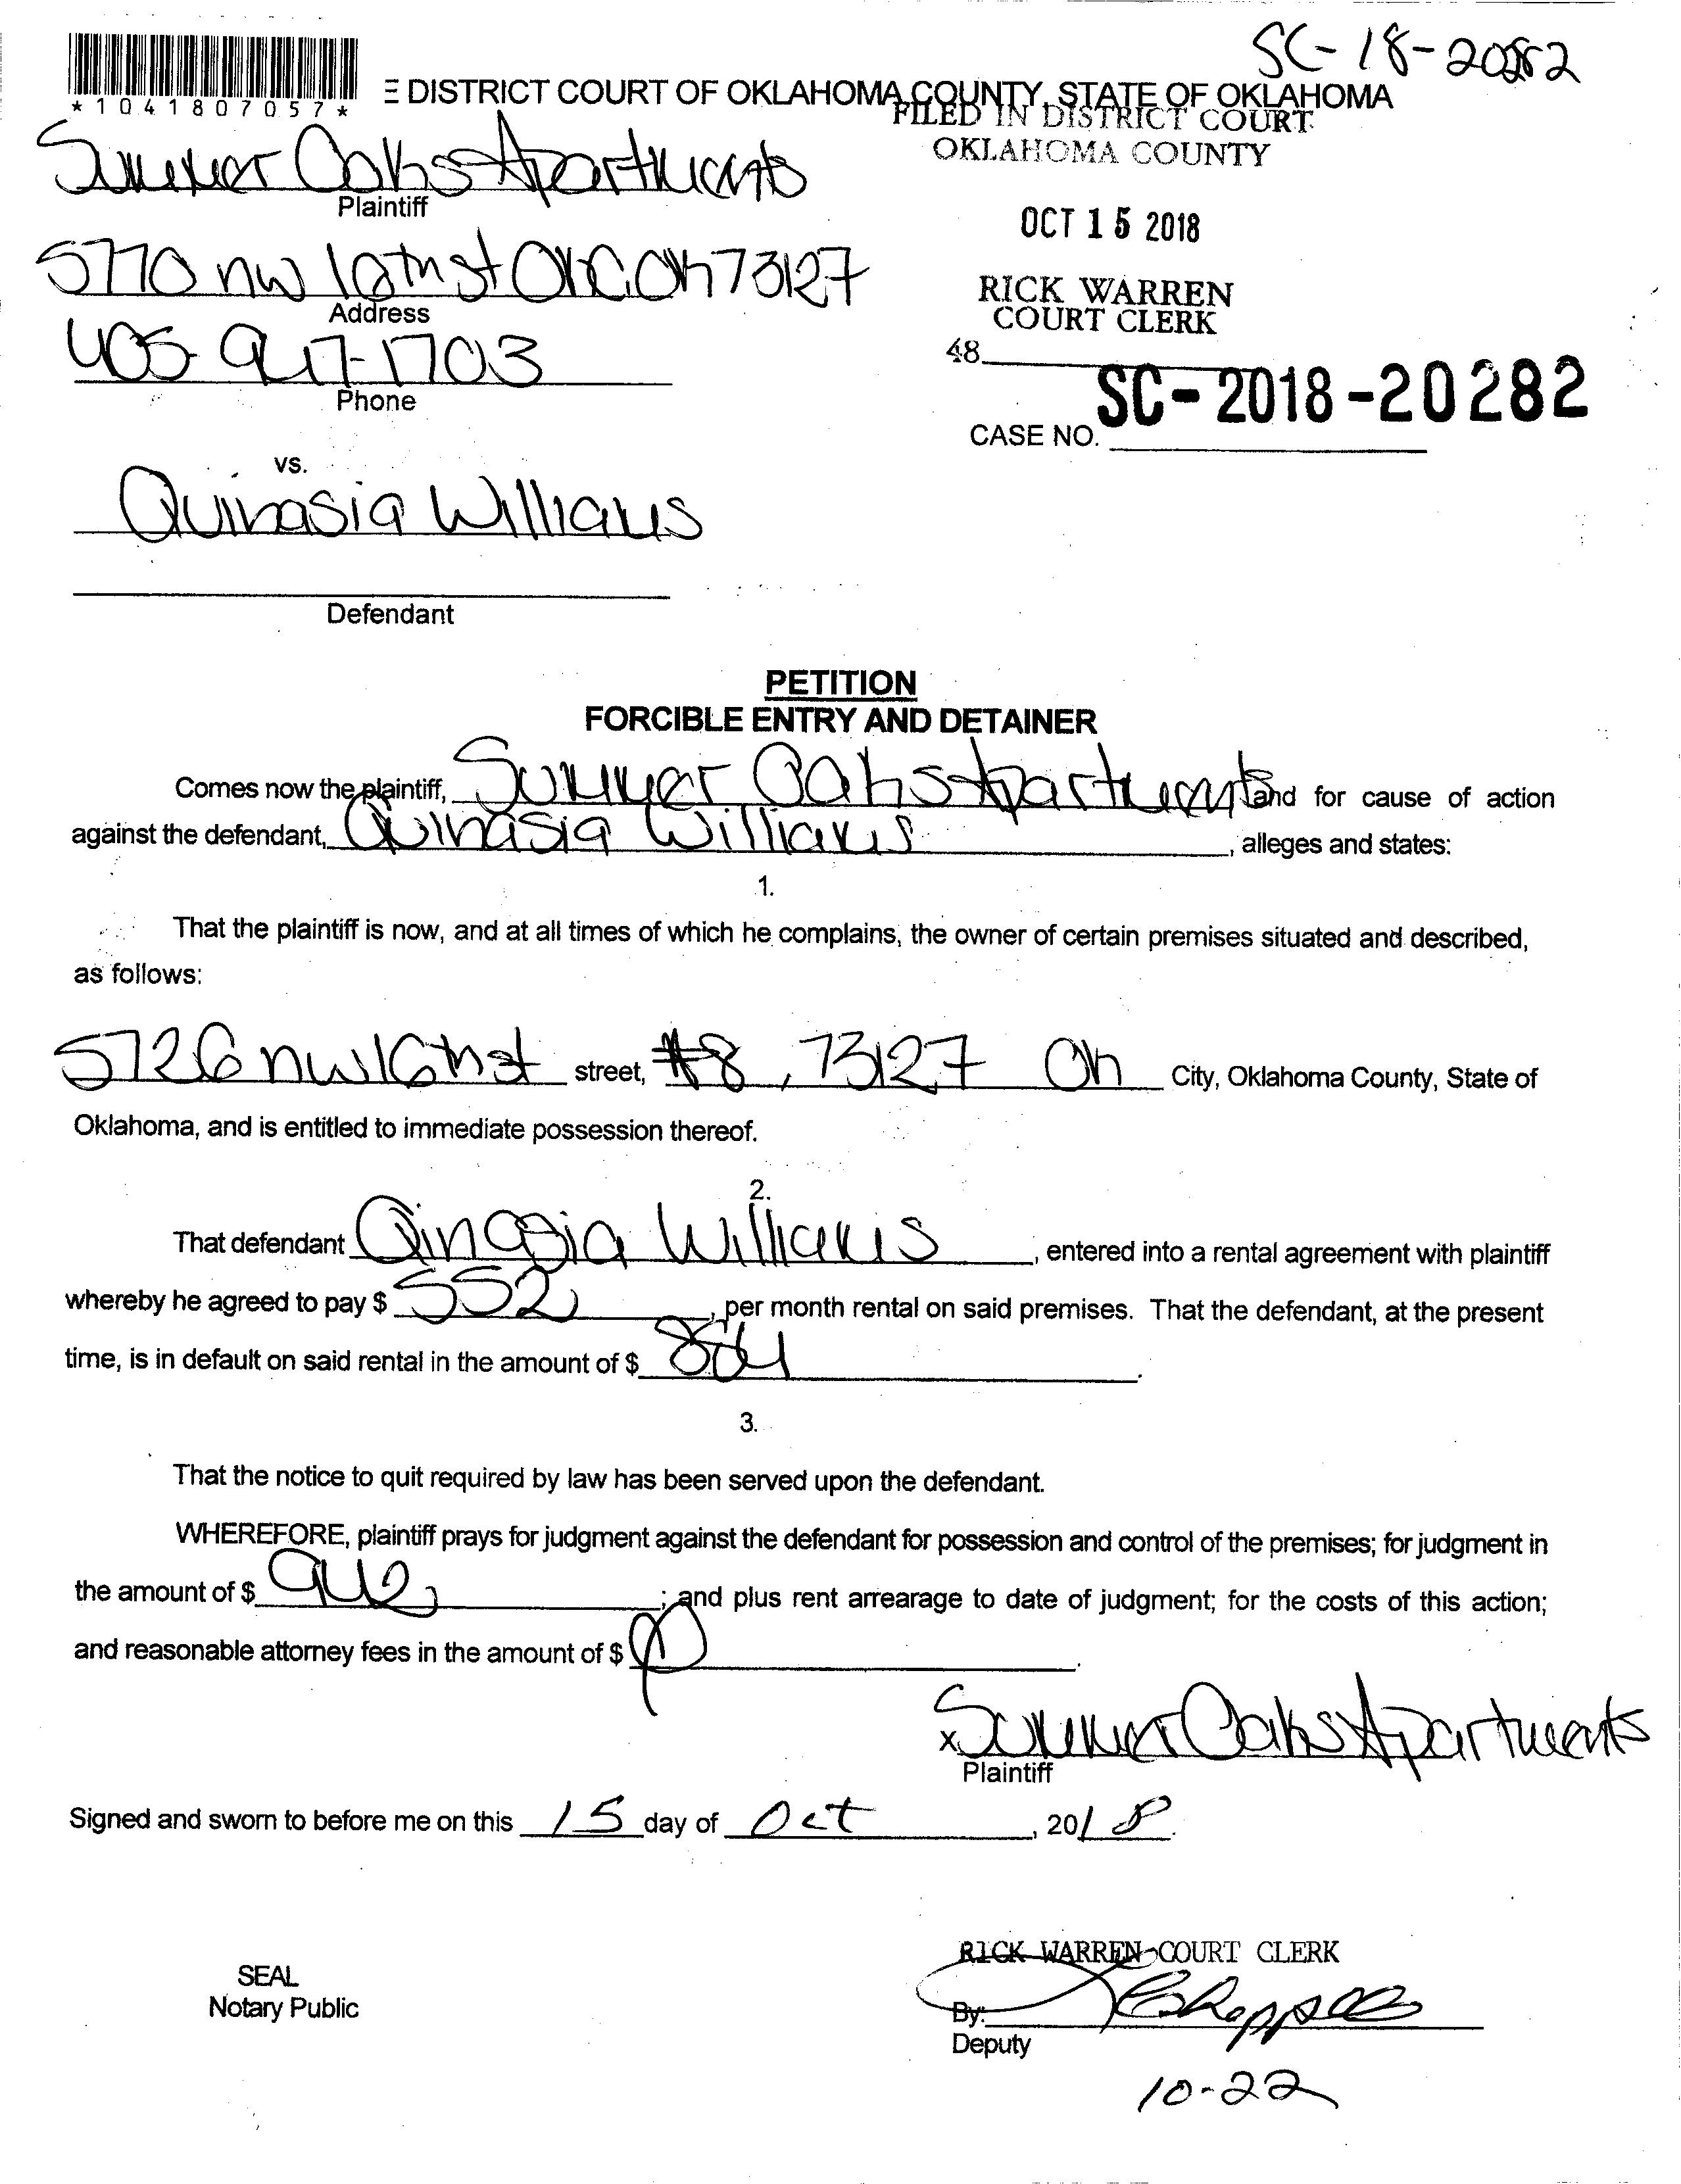 SC-18-20282
*1041807057*
E DISTRICT COURT OF OKLAHOMA COUNTY, STATE OF OKLAHOMA
FILED IN DISTRICT COURT
OKLAHOMA COUNTY
Summer Oaks Apartments
Plaintiff
OCT 15 2018
5770 nw 16th st OKC Ok 73127
Address
RICK WARREN
COURT CLERK
405-917-1703
Phone
48
SC-2018-20282
CASE NO.
vs.
Quinasia Williams
Defendant
PETITION
FORCIBLE ENTRY AND DETAINER
Comes now the plaintiff, Summer Oaks Apartments and for cause of action
against the defendant, Quinasia Williams, alleges and states:
1.
That the plaintiff is now, and at all times of which he complains, the owner of certain premises situated and described,
as follows:
5726 nw 16th st street, #8, 73127 Ok City, Oklahoma County, State of
Oklahoma, and is entitled to immediate possession thereof.
2.
That defendant Qinasia Williams, entered into a rental agreement with plaintiff
whereby he agreed to pay $ 552, per month rental on said premises. That the defendant, at the present
time, is in default on said rental in the amount of $
3.
That the notice to quit required by law has been served upon the defendant.
WHEREFORE, plaintiff prays for judgment against the defendant for possession and control of the premises; for judgment in
the amount of $ ; and plus rent arrearage to date of judgment; for the costs of this action;
and reasonable attorney fees in the amount of $
x Summer Oaks Apartments
Plaintiff
Signed and sworn to before me on this 15 day of Oct, 2018.
RICK WARREN COURT CLERK
SEAL
Notary Public
By:
Deputy
10-22